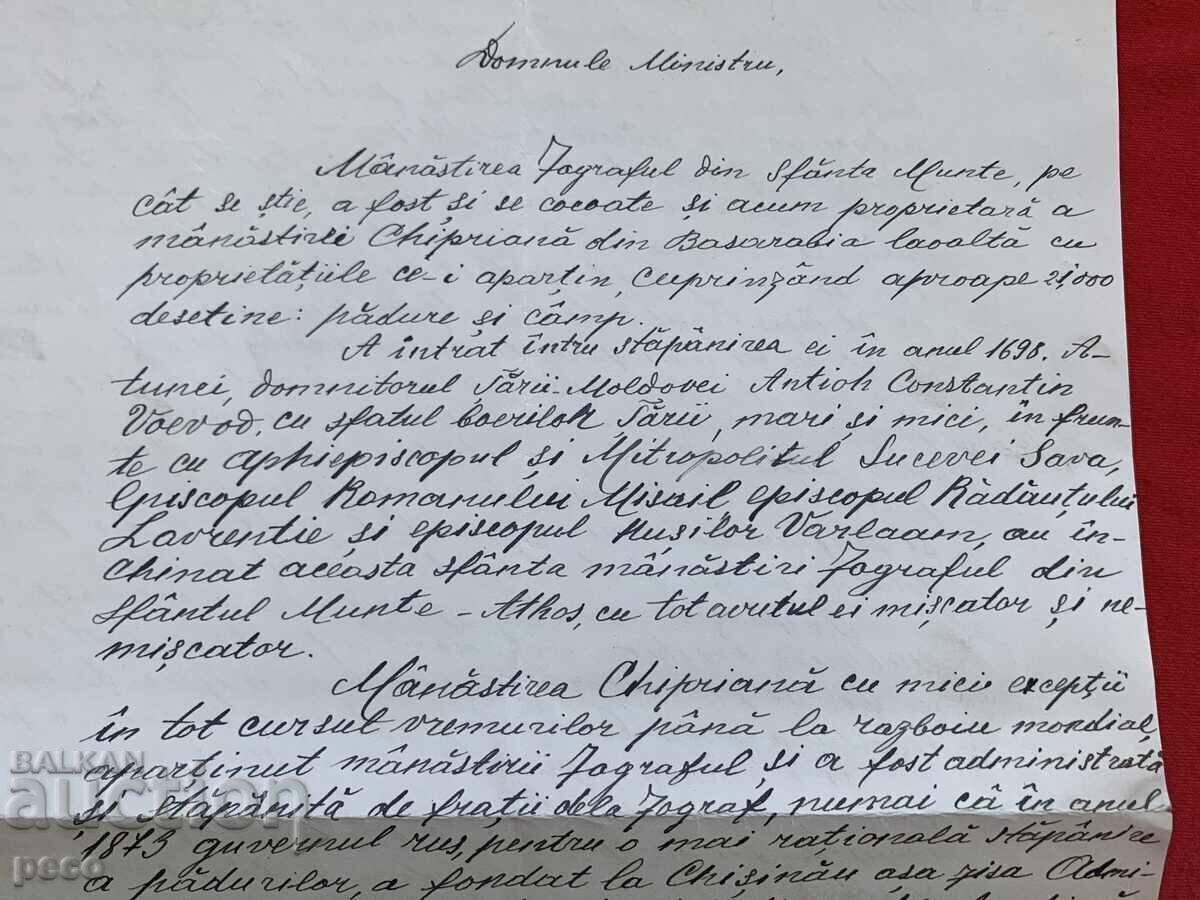 Domnule Ministru,
Mânăstirea Zograful din Sfânta Munte, pe
cât se știe, a fost și se cocoate și acum proprietară a
mânăstirei Chipriană din Basarabia laoaltă cu
proprietățiile ce-i aparțin, cuprinzând aproape 21,000
desetine: pădure și câmp.
A intrat întru stăpânirea ei în anul 1698. A-
tunci, domnitorul Țării-Moldovei Antioh Constantin
Voevod, cu sfatul boerilor Țării, mari și mici, în frun-
te cu aphiepiscopul și Mitropolitul Sucevei Sava,
Episcopul Romanului Misail, episcopul Rădăuțului
Lavrentie și episcopul Hușilor Varlaam, au în-
chinat aceasta sfânta mânăstiri Zograful din
Sfântul Munte - Athos, cu tot avutul ei mișcator și ne-
mișcator.
Mânăstirea Chipriană cu mici excepții
în tot cursut vremurilor până la razboiu mondial,
aparținut mânăstirii Zograful și a fost administrată
și stăpânită de frații dela Zograf, numai că în anul
1873 guvernul rus, pentru o mai rațională stăpânire
a pădurilor, a fondat la Chișinău așa zisa Admi-
BALKAN
auction
peco